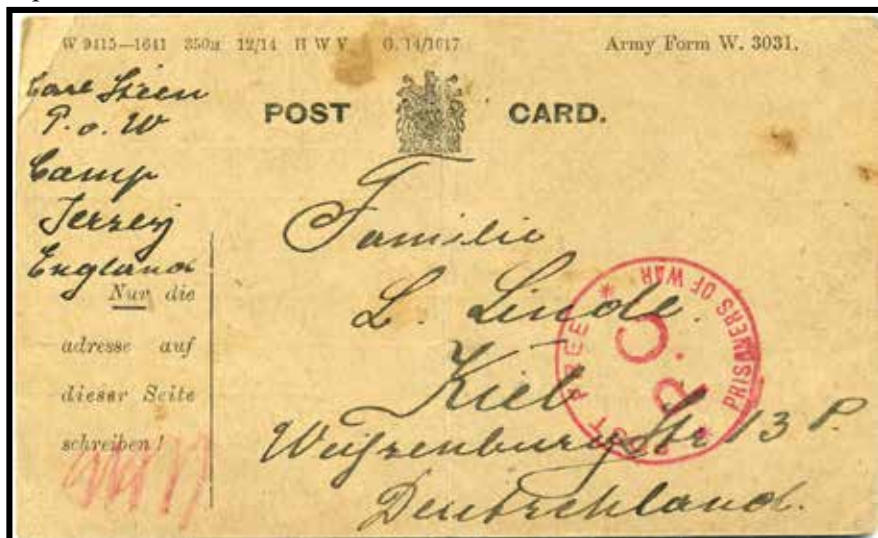 W 9415—1641 350M 12/14 H W V G. 14/1617
Army Form W. 3031.
POST CARD.
P. o. W
Camp
Jersey
England
Nur die
adresse auf
dieser Seite
schreiben!
Familie
L. Linde.
Kiel
Str 13 P.
Deutschland.
PRISONERS OF WAR
POST FREE
P. C.